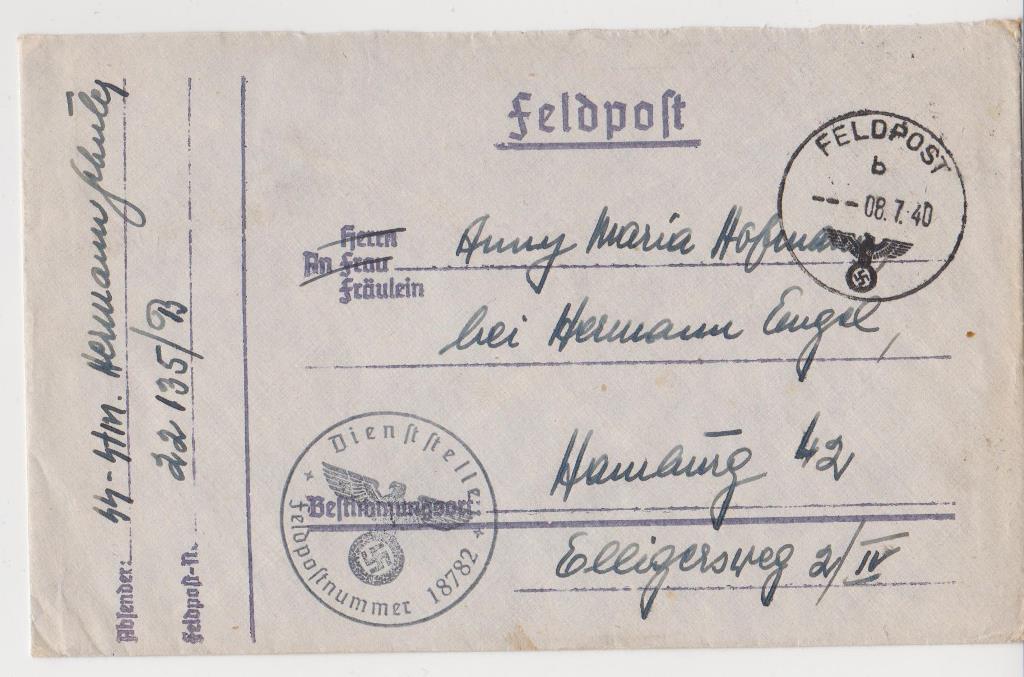 Feldpost
FELDPOST
b
---08.7.40
Herrn
An Frau
Fräulein
Anny Maria Hofmann
bei Hermann Engel,
Hamburg 42
Bestimmungsort:
Elligersweg 2/IV
Dienststelle
Feldpostnummer 18782
Absender: SS-Stm. Hermann
Feldpost-N. 22135/B